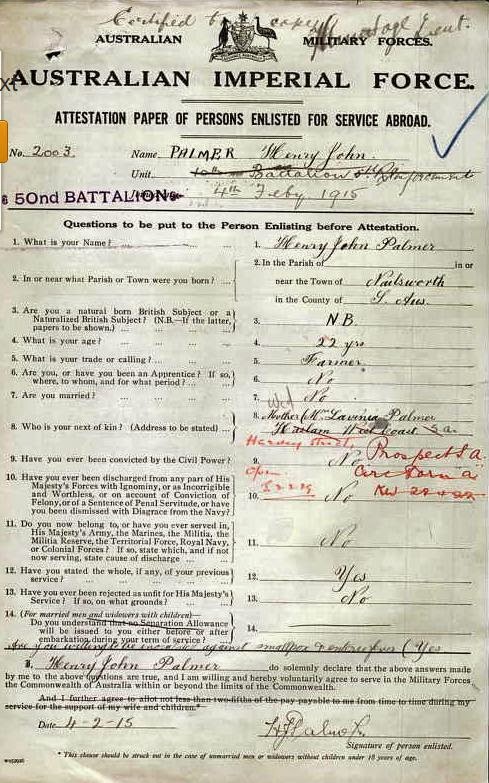 Certified to copy
AUSTRALIAN MILITARY FORCES.
AUSTRALIAN IMPERIAL FORCE.
ATTESTATION PAPER OF PERSONS ENLISTED FOR SERVICE ABROAD.
No. 2003. Name PALMER Henry John.
Unit 10th Battalion 5th Reinforcements
50ND BATTALION 4th Feby 1915
Questions to be put to the Person Enlisting before Attestation.
1. What is your Name? 1. Henry John Palmer
2. In or near what Parish or Town were you born? 2. In the Parish of in or
near the Town of Nailsworth
in the County of S. Aus.
3. Are you a natural born British Subject or a
Naturalized British Subject? (N.B.—If the latter,
papers to be shown.) 3. N.B.
4. What is your age? 4. 22 yrs
5. What is your trade or calling? 5. Farmer
6. Are you, or have you been an Apprentice? If so,
where, to whom, and for what period? 6. No
7. Are you married? 7. No
8. Who is your next of kin? (Address to be stated) 8. Mother (Mrs Lavinia Palmer
Haslam West Coast S.a.
Harvey Street Prospect S.a
9. Have you ever been convicted by the Civil Power? 9. No
10. Have you ever been discharged from any part of His
Majesty's Forces with Ignominy, or as Incorrigible
and Worthless, or on account of Conviction of
Felony, or of a Sentence of Penal Servitude, or have
you been Dismissed with Disgrace from the Navy? 10. No
11. Do you now belong to, or have you ever served in,
His Majesty's Army, the Marines, the Militia, the
Militia Reserve, the Territorial Force, Royal Navy,
or Colonial Forces? If so, state which, and if not now
serving, state cause of discharge 11. No
12. Have you stated the whole, if any, of your previous
service? 12. Yes
13. Have you ever been rejected as unfit for His Majesty's
Service? If so, on what grounds? 13. No
14. (For married men and widowers with children)—
Do you understand that no Separation Allowance
will be issued to you either before or after
embarkation during your term of service? 14.
Are you willing to be inoculated against smallpox & enteric fever (Yes
I, Henry John Palmer do solemnly declare that the above answers made
by me to the above questions are true, and I am willing and hereby voluntarily agree to serve in the Military Forces
of the Commonwealth of Australia within or beyond the limits of the Commonwealth.
And I further agree to allot not less than two-fifths of the pay payable to me from time to time during my
service for the support of my wife and children.*
Date 4-2-15 H J Palmer
Signature of person enlisted.
* This clause should be struck out in the case of unmarried men or widowers without children under 18 years of age.